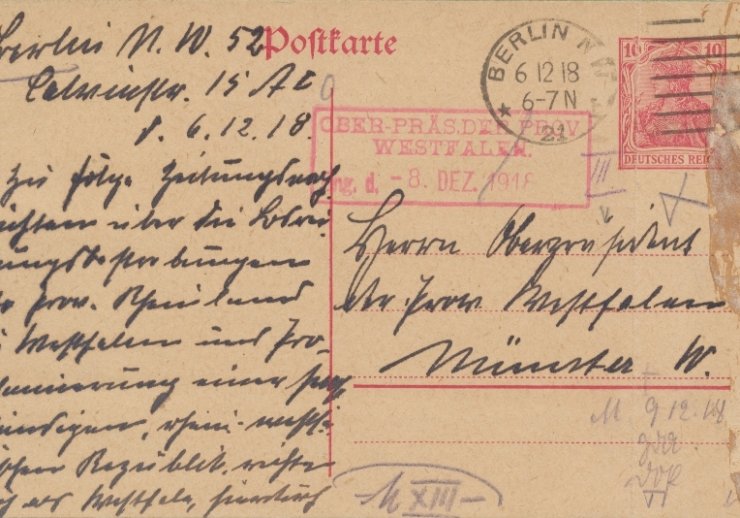 Berlin N. W. 52
Postkarte
Calvinstr. 15
d. 6.12.18.
Zu folge Zeitungsnach
ichten über die Losrei
ungsbestrebungen
Prov. Rheinland
Westfalen und Pro-
lamierung einer
ändigen, rhein.-westfä
schen Republik, richte
ich als Westfale, hierdurch
BERLIN NW
6 12 18
6-7N
21
10 10
DEUTSCHES REICH
OBER-PRÄS.DER PROV.
WESTFALEN.
ng. d. -8. DEZ. 1918
III
Herrn Oberpräsident
der Prov Westfalen
Münster W.
M 9 12. 18
M XIII